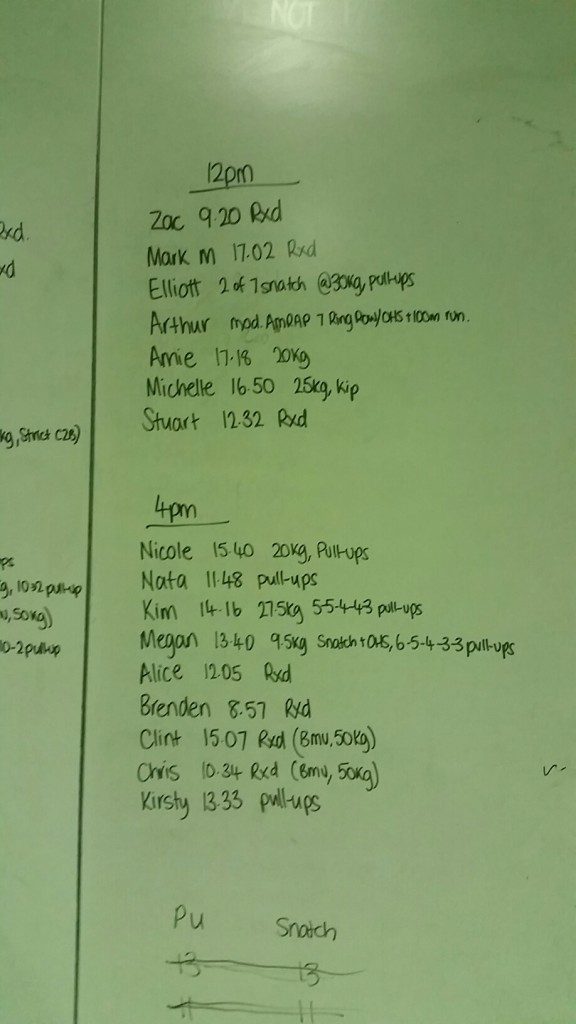 NOT
12pm
Zac 9.20 Rxd
Mark M 17.02 Rxd
Elliott 2 of 7 snatch @30kg, pull-ups
Arthur mod. AMRAP 7 Ring Row/OHS + 100m run.
Amie 17.18 20kg
Michelle 16.50 25kg, kip
Stuart 12.32 Rxd
4pm
Nicole 15.40 20kg, Pull-ups
Nata 11.48 pull-ups
Kim 14.16 27.5kg 5-5-4-4-3 pull-ups
Megan 13.40 9.5kg Snatch + OHS, 6-5-4-3-3 pull-ups
Alice 12.05 Rxd
Brenden 8.57 Rxd
Clint 15.07 Rxd (Bmu, 50kg)
Chris 10.34 Rxd (Bmu, 50kg)
Kirsty 13.33 pull-ups
PU Snatch
13 13
11 11
Rxd.
xd
kg, Strict C2B)
ps
pull-up
50kg)
10-2 pullup